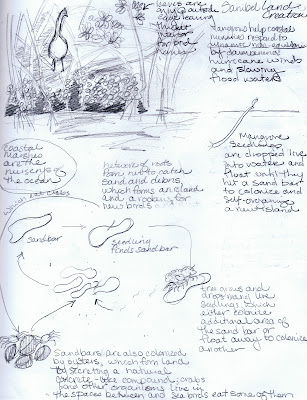 leaves are
Sanibel Land
Creation
Mangroves help coastal
marshes respond to
hurricane winds
and slowing
flood waters
Mangrove
Seedlings
are dropped live
into water and
float until they
hit a sand bar
to colonize and
self-organize
a new island
Coastal
Marshes
are the
nursery of
the ocean
network of roots
form net to catch
sand and debris,
which forms an island
and a
new birds
which eat crabs
sandbar
seedling
finds sandbar
tree grows and
drops more live
seedlings which
either colonize
additional area of
the sand bar or
float away to colonize
another
Sandbars are also colonized
by oysters, which form land
by secreting a natural
concrete-like compound; crabs
and other organisms live in
the spaces between and sea birds eat some of them